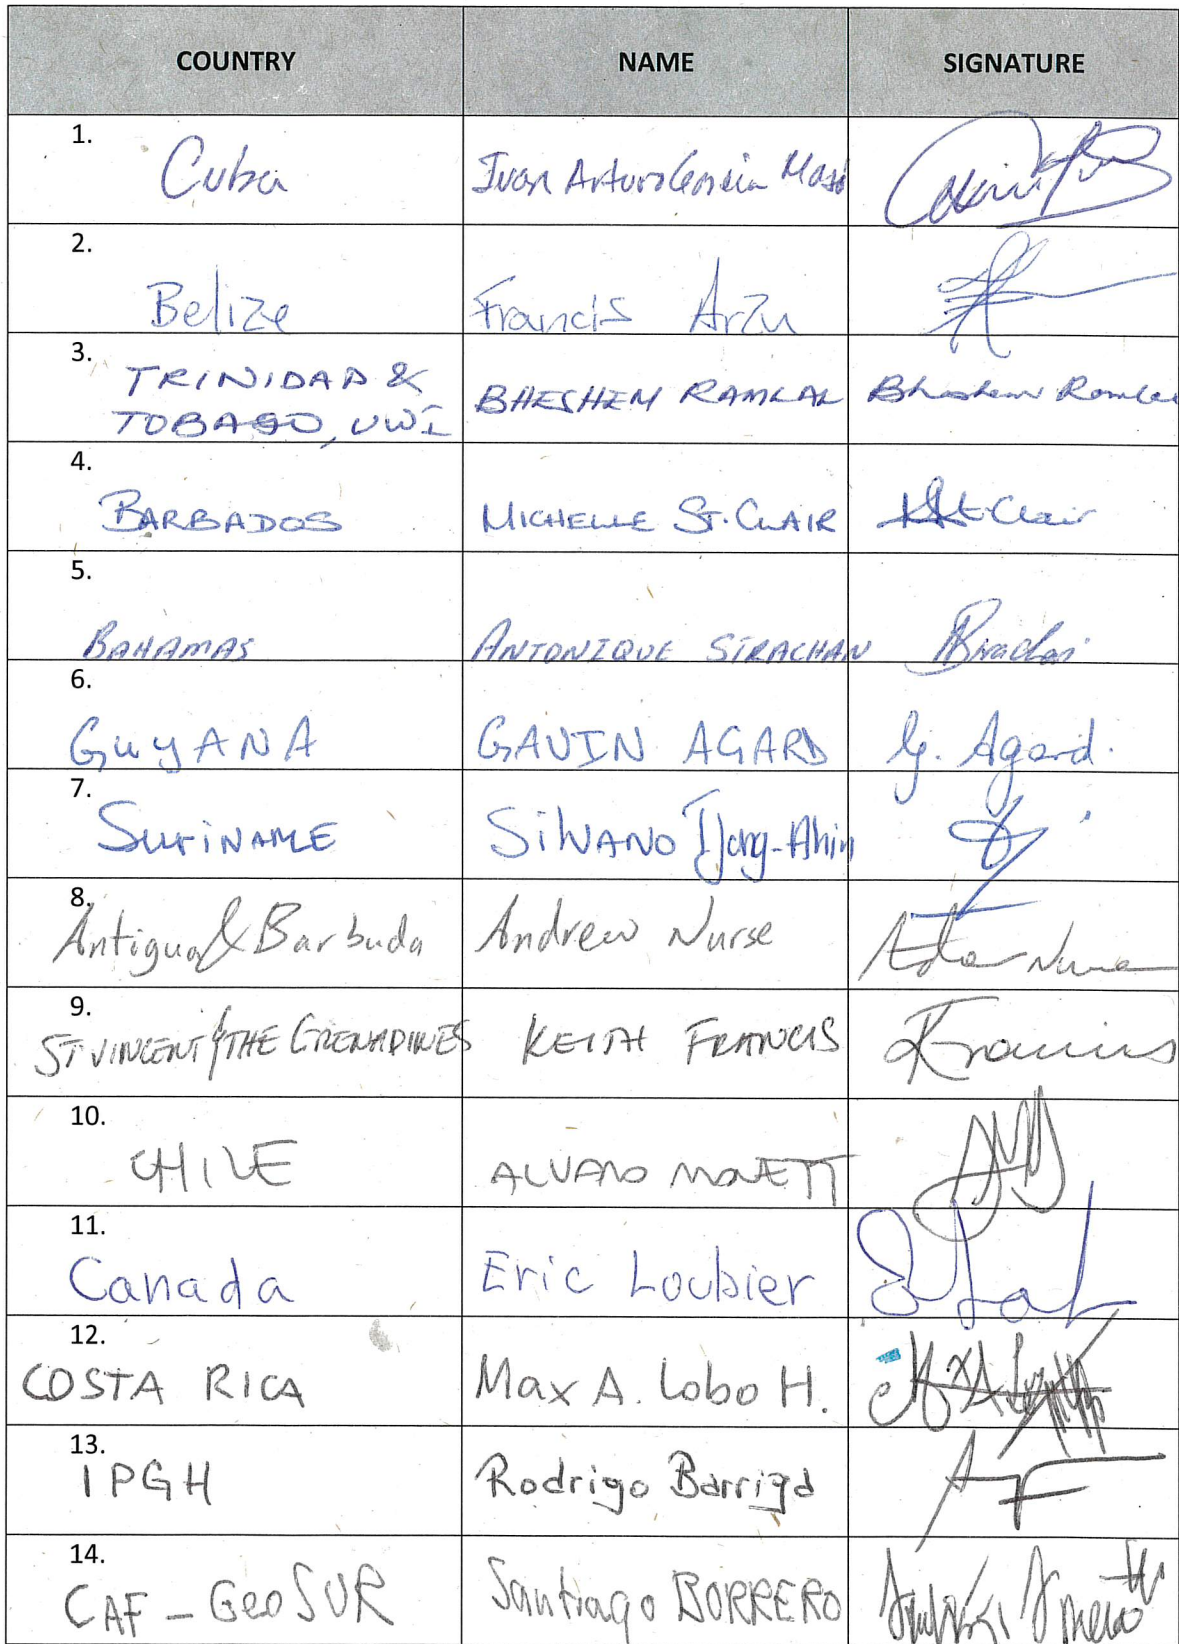 COUNTRY NAME SIGNATURE
1. Cuba Ivan Arturo Garcia Maso
2. Belize Francis Arzu
3. TRINIDAD & TOBAGO, UWI BHESHEM RAMLAL Bheshem Ramlal
4. BARBADOS MICHELLE ST. CLAIR St Clair
5. BAHAMAS ANTONIQUE STRACHAN
6. GUYANA GAVIN AGARD G. Agard.
7. SURINAME SILVANO Tjong-Ahin
8. Antigua & Barbuda Andrew Nurse Nurse
9. ST VINCENT & THE GRENADINES KEITH FRANCIS KFrancis
10. CHILE ALVARO MONETT
11. Canada Eric Loubier
12. COSTA RICA Max A. Lobo H.
13. IPGH Rodrigo Barriga
14. CAF - GeoSUR Santiago BORRERO